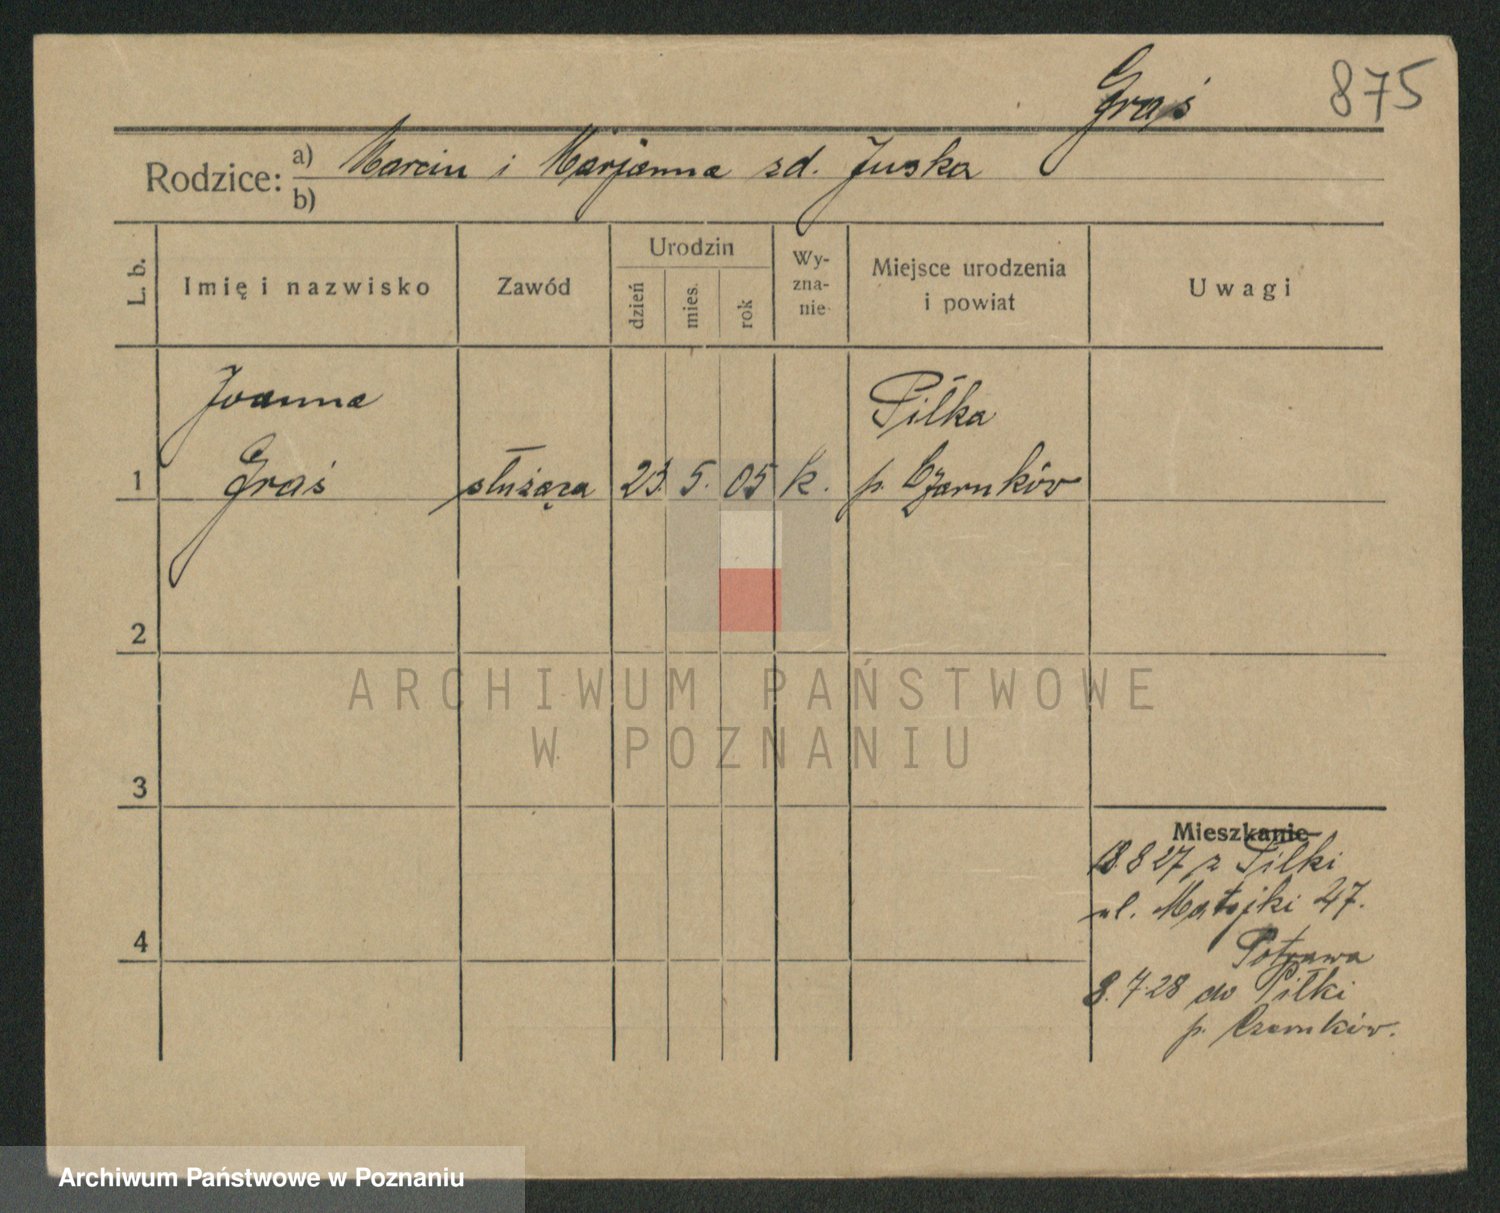 Graś 875
Rodzice: a) Marcin i Marjanna zd. Juska
b)
L. b. Imię i nazwisko Zawód Urodzin dzień mies. rok Wy-zna-nie Miejsce urodzenia i powiat Uwagi
Joanna Piłka
1 Graś służąca 23. 5. 05 k. p. Czarnków
2
ARCHIWUM PAŃSTWOWE
W POZNANIU
3
Mieszkanie
18.8 27 z Piłki
ul. Matejki 47.
4 Potrawa
8. 7.28 do Piłki
p. Czarnków.
Archiwum Państwowe w Poznaniu